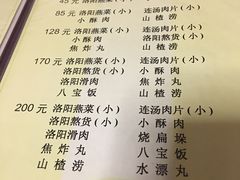 45 元 洛阳燕菜(小) 连汤肉片(小)
85 元 洛阳燕菜(小) 连汤肉片(小)
小酥肉 山楂涝
128 元 洛阳燕菜(小) 连汤肉片(小)
洛阳熬货(小) 小酥肉
焦炸丸 山楂涝
170 元 洛阳燕菜(小) 连汤肉片(小)
洛阳熬货(小) 小酥肉
洛阳滑肉 焦炸丸
八宝饭 山楂涝
200 元 洛阳燕菜(小) 连汤肉片(小)
洛阳熬货(小) 小酥肉
洛阳滑肉 烧扁垛
焦炸丸 八宝饭
山楂涝 水漂丸